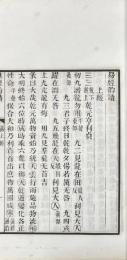 上經
乾元亨利貞
初九潛龍勿用 九二見龍在田利見大人
九三君子終日乾乾夕惕若厲无咎 九四或
躍在淵无咎 九五飛龍在天利見大人 上九
亢龍有悔 用九見羣龍无首吉
彖曰大哉乾元萬物資始乃統天雲行雨施品物流形
大明終始六位時成時乘六龍以御天乾道變化各正
性命保合大和乃利貞首出庶物萬國咸寧